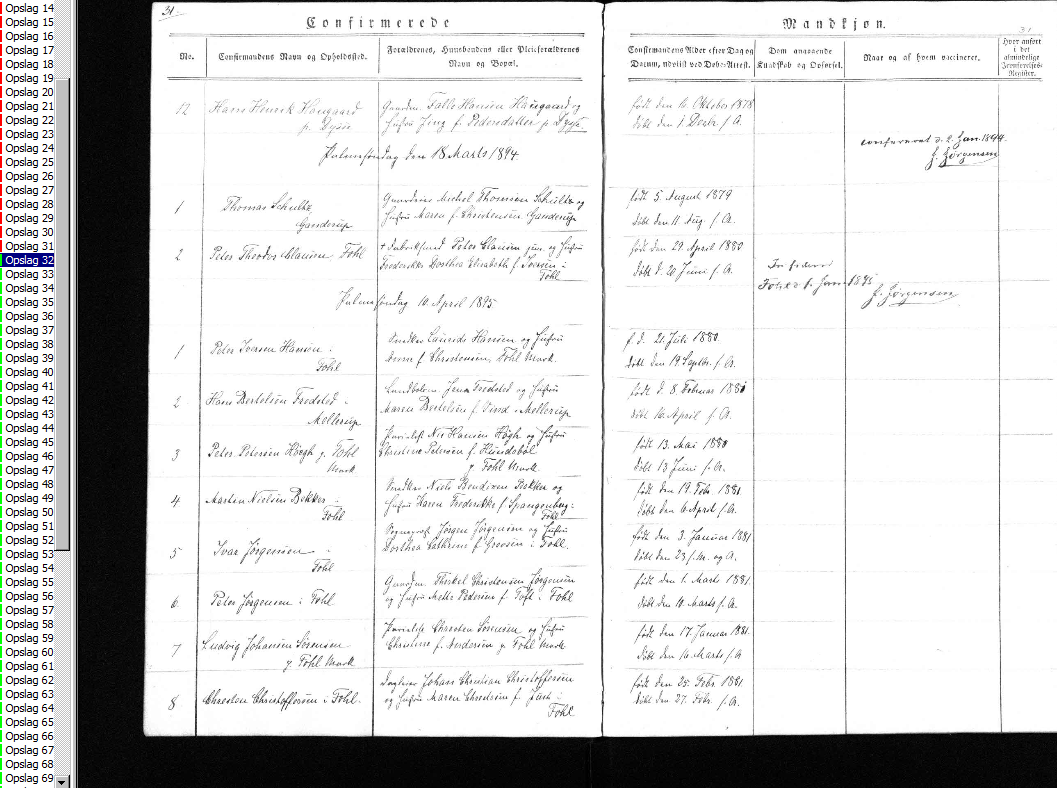 Opslag 14
Opslag 15
Opslag 16
Opslag 17
Opslag 18
Opslag 19
Opslag 20
Opslag 21
Opslag 22
Opslag 23
Opslag 24
Opslag 25
Opslag 26
Opslag 27
Opslag 28
Opslag 29
Opslag 30
Opslag 31
Opslag 32
Opslag 33
Opslag 34
Opslag 35
Opslag 36
Opslag 37
Opslag 38
Opslag 39
Opslag 40
Opslag 41
Opslag 42
Opslag 43
Opslag 44
Opslag 45
Opslag 46
Opslag 47
Opslag 48
Opslag 49
Opslag 50
Opslag 51
Opslag 52
Opslag 53
Opslag 54
Opslag 55
Opslag 56
Opslag 57
Opslag 58
Opslag 59
Opslag 60
Opslag 61
Opslag 62
Opslag 63
Opslag 64
Opslag 65
Opslag 66
Opslag 67
Opslag 68
Opslag 69
31.
Confirmerede
No.
Confirmandens Navn og Opholdssted.
Forældrenes, Huusbondens eller Pleieforældrenes
Navn og Bopæl.
12
Hans Henrik Haugaard
Gaardm. Falle Hansen Haugaard og
Palmesøndag den 18 Marts 1894
1
Thomas Schultz
Ganderup
Michel Thomsen Schultz og
Hustru Maren f. Christensen Ganderup
2
Peter Theodor Clausen Fohl
Peter Clausen jun. og Hustru
Frederikke Dorthea Elisabeth f. Iversen i
Fohl
Palmesøndag 10 April 1895
1
Peter Iversen Hansen
Fohl
Laurids Hansen og Hustru
f. Christensen, Fohl Mark.
2
Hans Bertelsen Fredsted
Mellerup
Jens Fredsted og Hustru
Maren Bertelsen f. Mellerup
3
Peter Petersen Höegh p. Fohl
Mark
Nis Hansen Högh og Hustru
Christine Petersen f. Hundebøl
p. Fohl Mark
4
Marten Nielsen Bekker i
Fohl
Niels Bendixen Bekker og
Hustru Karen Frederikke f. Spangenberg i
Fohl
5
Ivar Jörgensen
Fohl
Jørgen Jørgensen og Hustru
Dorthea Cathrine f. i Fohl.
6
Peter Jørgensen i Fohl
Gaardm. Therkel Christensen Jørgensen
og Hustru Mette Pedersen f. Toft i Fohl
7
Ludvig Johansen Sørensen
p. Fohl Mark
Christen Sørensen og Hustru
Christine f. Andersen p. Fohl Mark
8
Christen Christoffersen i Fohl.
Daglejer Johan Christian Christoffersen
og Hustru Maren f.
Fohl
Mandkjøn.
Confirmandens Alder efter Dag og
Datum, udviist ved Døbe-Attest.
Dom angaaende
Kundskab og Opførsel.
Naar og af hvem vaccineret.
Hvor anført
i det
almindelige
Jevnførelses-
Register.
født den 10 Oktober 1878
døbt den 1 Decbr. s. A.
confereret d. 2 Jan. 1894.
J. Jørgensen
født 5. August 1879
døbt den 11 Aug. s. A.
født den 29. April 1880
døbt d. 20 Juni s. A.
1895
J. Jørgensen
f. d. 21. Juli 1880
døbt den 19. Septbr. s. A.
født d. 8. Februar 1881
døbt 10 April s. A.
født 13. Mai 1880
døbt 13 Juni s. A.
født den 19. Febr. 1881
døbt den 6 April s. A.
født den 3. Januar 1881
døbt den 23 s. M. og A.
født den 1. Marts 1881.
døbt den 10. Marts s. A.
født den 17. Januar 1881.
døbt den 10. Marts s. A
født den 25. Febr. 1881
døbt den 27. Febr. s. A.